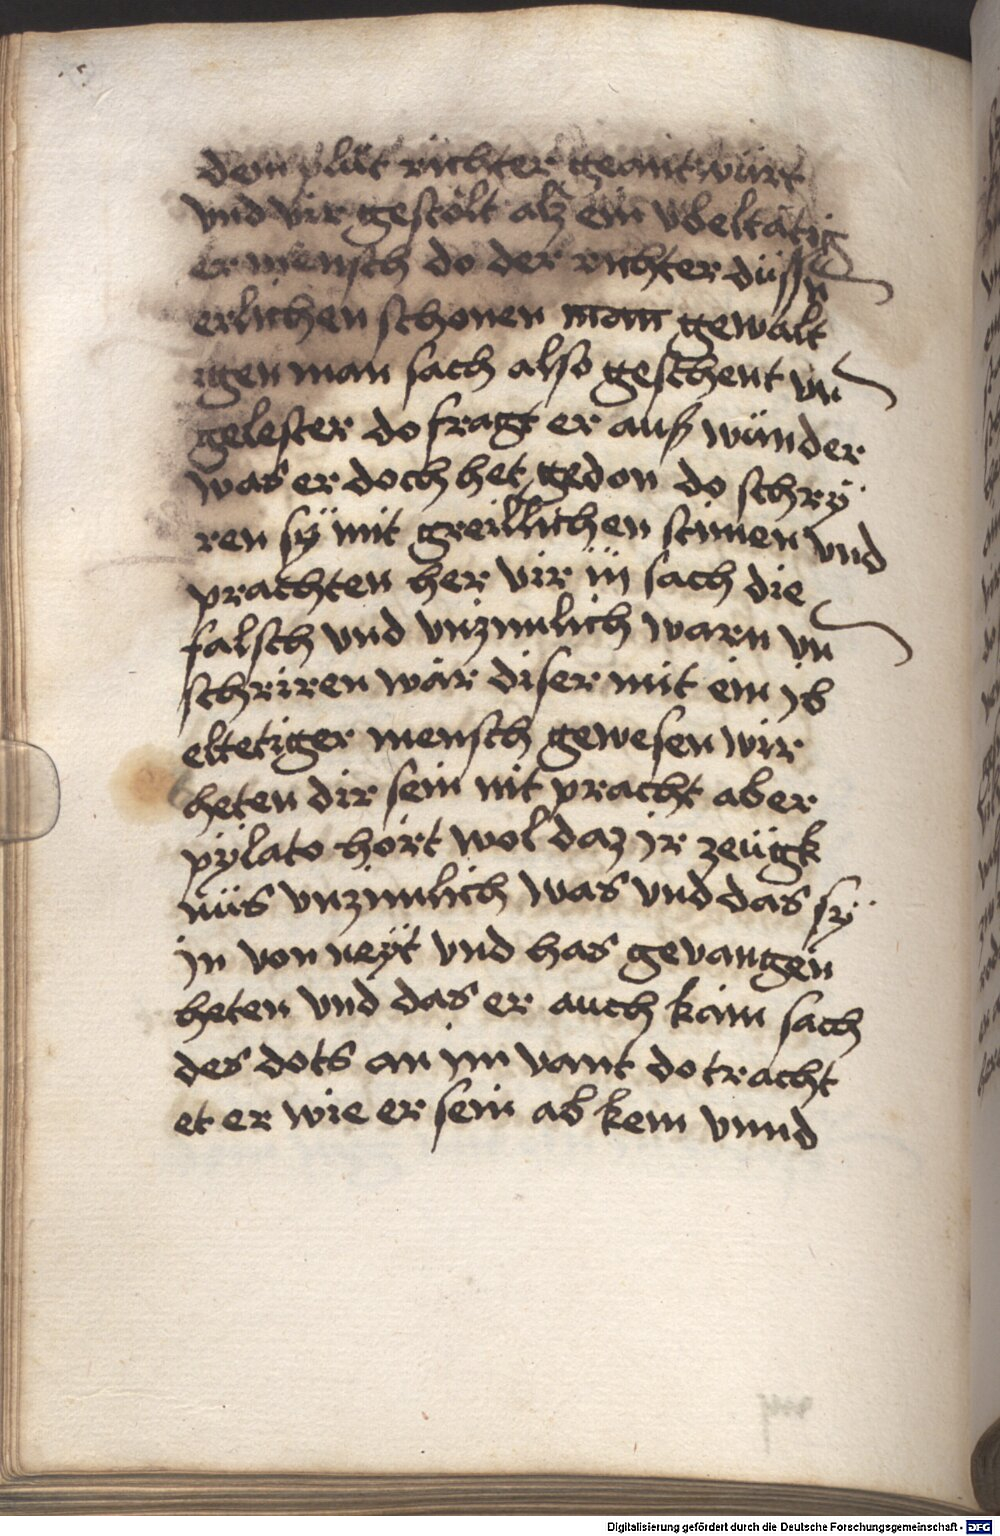 dem plůt richter geantwürt
vnd vir gestölt alz ein vbeltätig
er mensch do der richter düssñ
erlichen schonen man gewalt
igen man sach also geschent vn̄
gelester do fragt er auß wünder
was er doch het gedon do schrÿ
ren sÿ mit greillichen stimen vnd
prachten her vir iij sach die
falsch vnd vnzimlich warn vn̄
schriren wär diser mit ein jb
eltetiger mensch gewesen wir
heten dir sein nit pracht aber
pÿlato hört wol daz jr zeügk
nüs vnzimlich was vnd das sÿ
jn von neÿt vnd has gevangen
heten vnd das er auch kain sach
des dots an jm vant do tracht
et er wie er sein ab kem vnnd
Digitalisierung gefördert durch die Deutsche Forschungsgemeinschaft - DFG